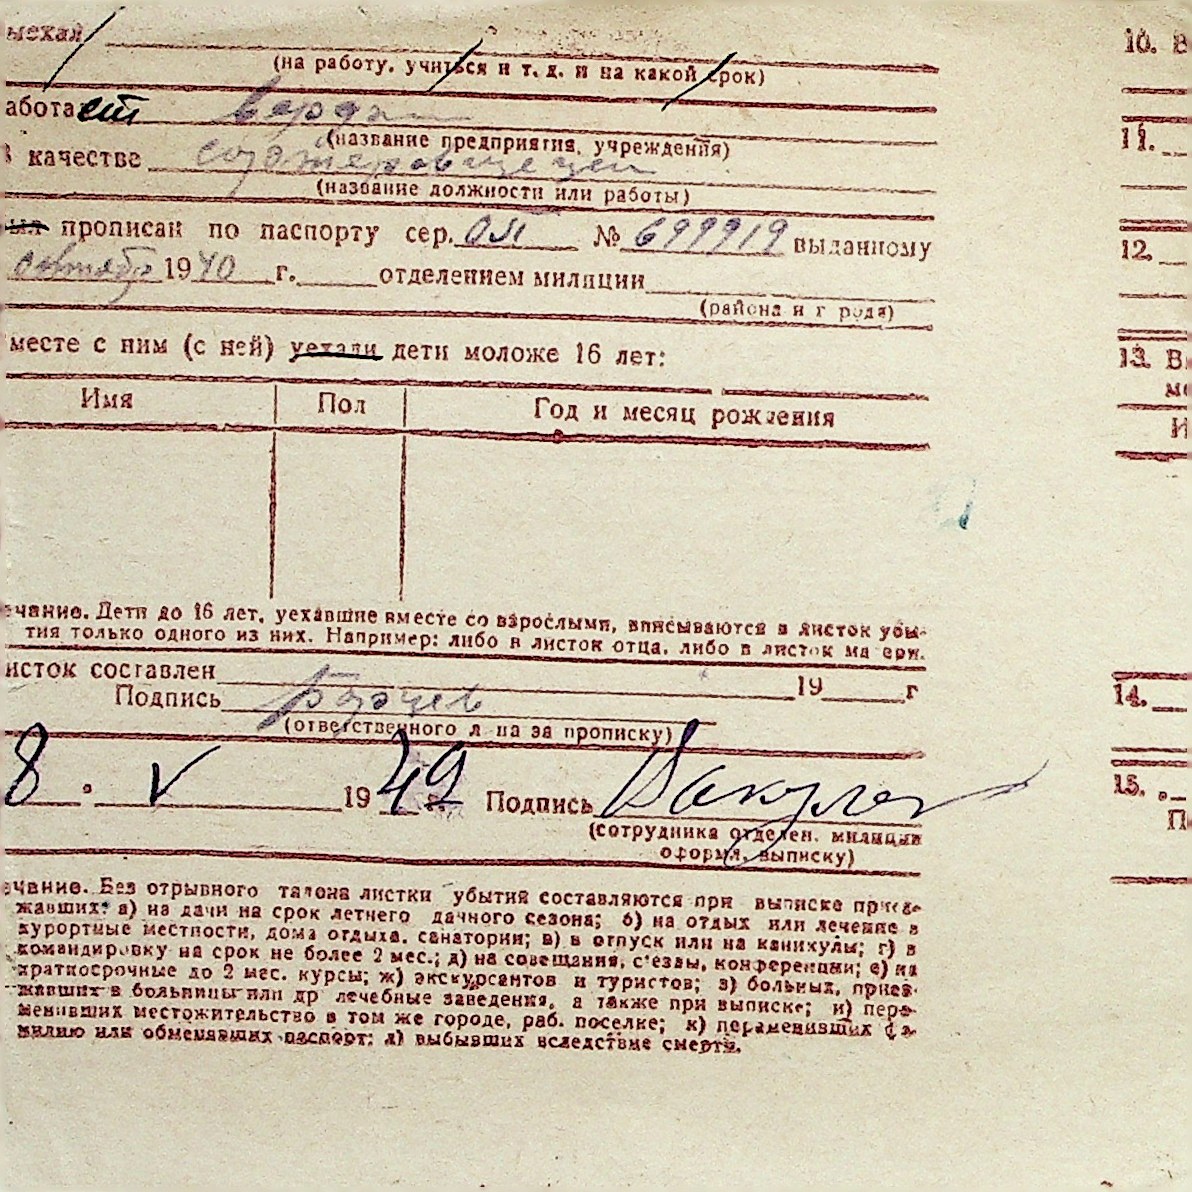 ыехал
(на работу, учиться и т. д. и на какой срок)
аботает
(название предприятия, учреждения)
в качестве
(название должности или работы)
был прописан по паспорту сер. № 699919 выданному
сентября 1940 г. отделением милиции
(района и города)
месте с ним (с ней) уехали дети моложе 16 лет:
Имя Пол Год и месяц рождения
ечание. Дети до 16 лет, уехавшие вместе со взрослыми, вписываются в листок убы-
тия только одного из них. Например: либо в листок отца, либо в листок матери.
исток составлен 19 г
Подпись
(ответственного лица за прописку)
8. V 1949 г. Подпись
(сотрудника отделен. милиции
оформ. выписку)
ечание. Без отрывного талона листки убытия составляются при выписке приез-
жавших: а) на дачи на срок летнего дачного сезона; б) на отдых или лечение в
курортные местности, дома отдыха, санатории; в) в отпуск или на каникулы; г) в
командировку на срок не более 2 мес.; д) на совещания, с'езды, конференции; е) на
краткосрочные до 2 мес. курсы; ж) экскурсантов и туристов; з) больных, приез-
жавших в больницы или др лечебные заведения, а также при выписке; и) пере-
менивших местожительство в том же городе, раб. поселке; к) переменивших фа-
милию или обменявших паспорт; л) выбывших вследствие смерти.
10. В
11.
12.
13. В
ме
И
14.
15.
П